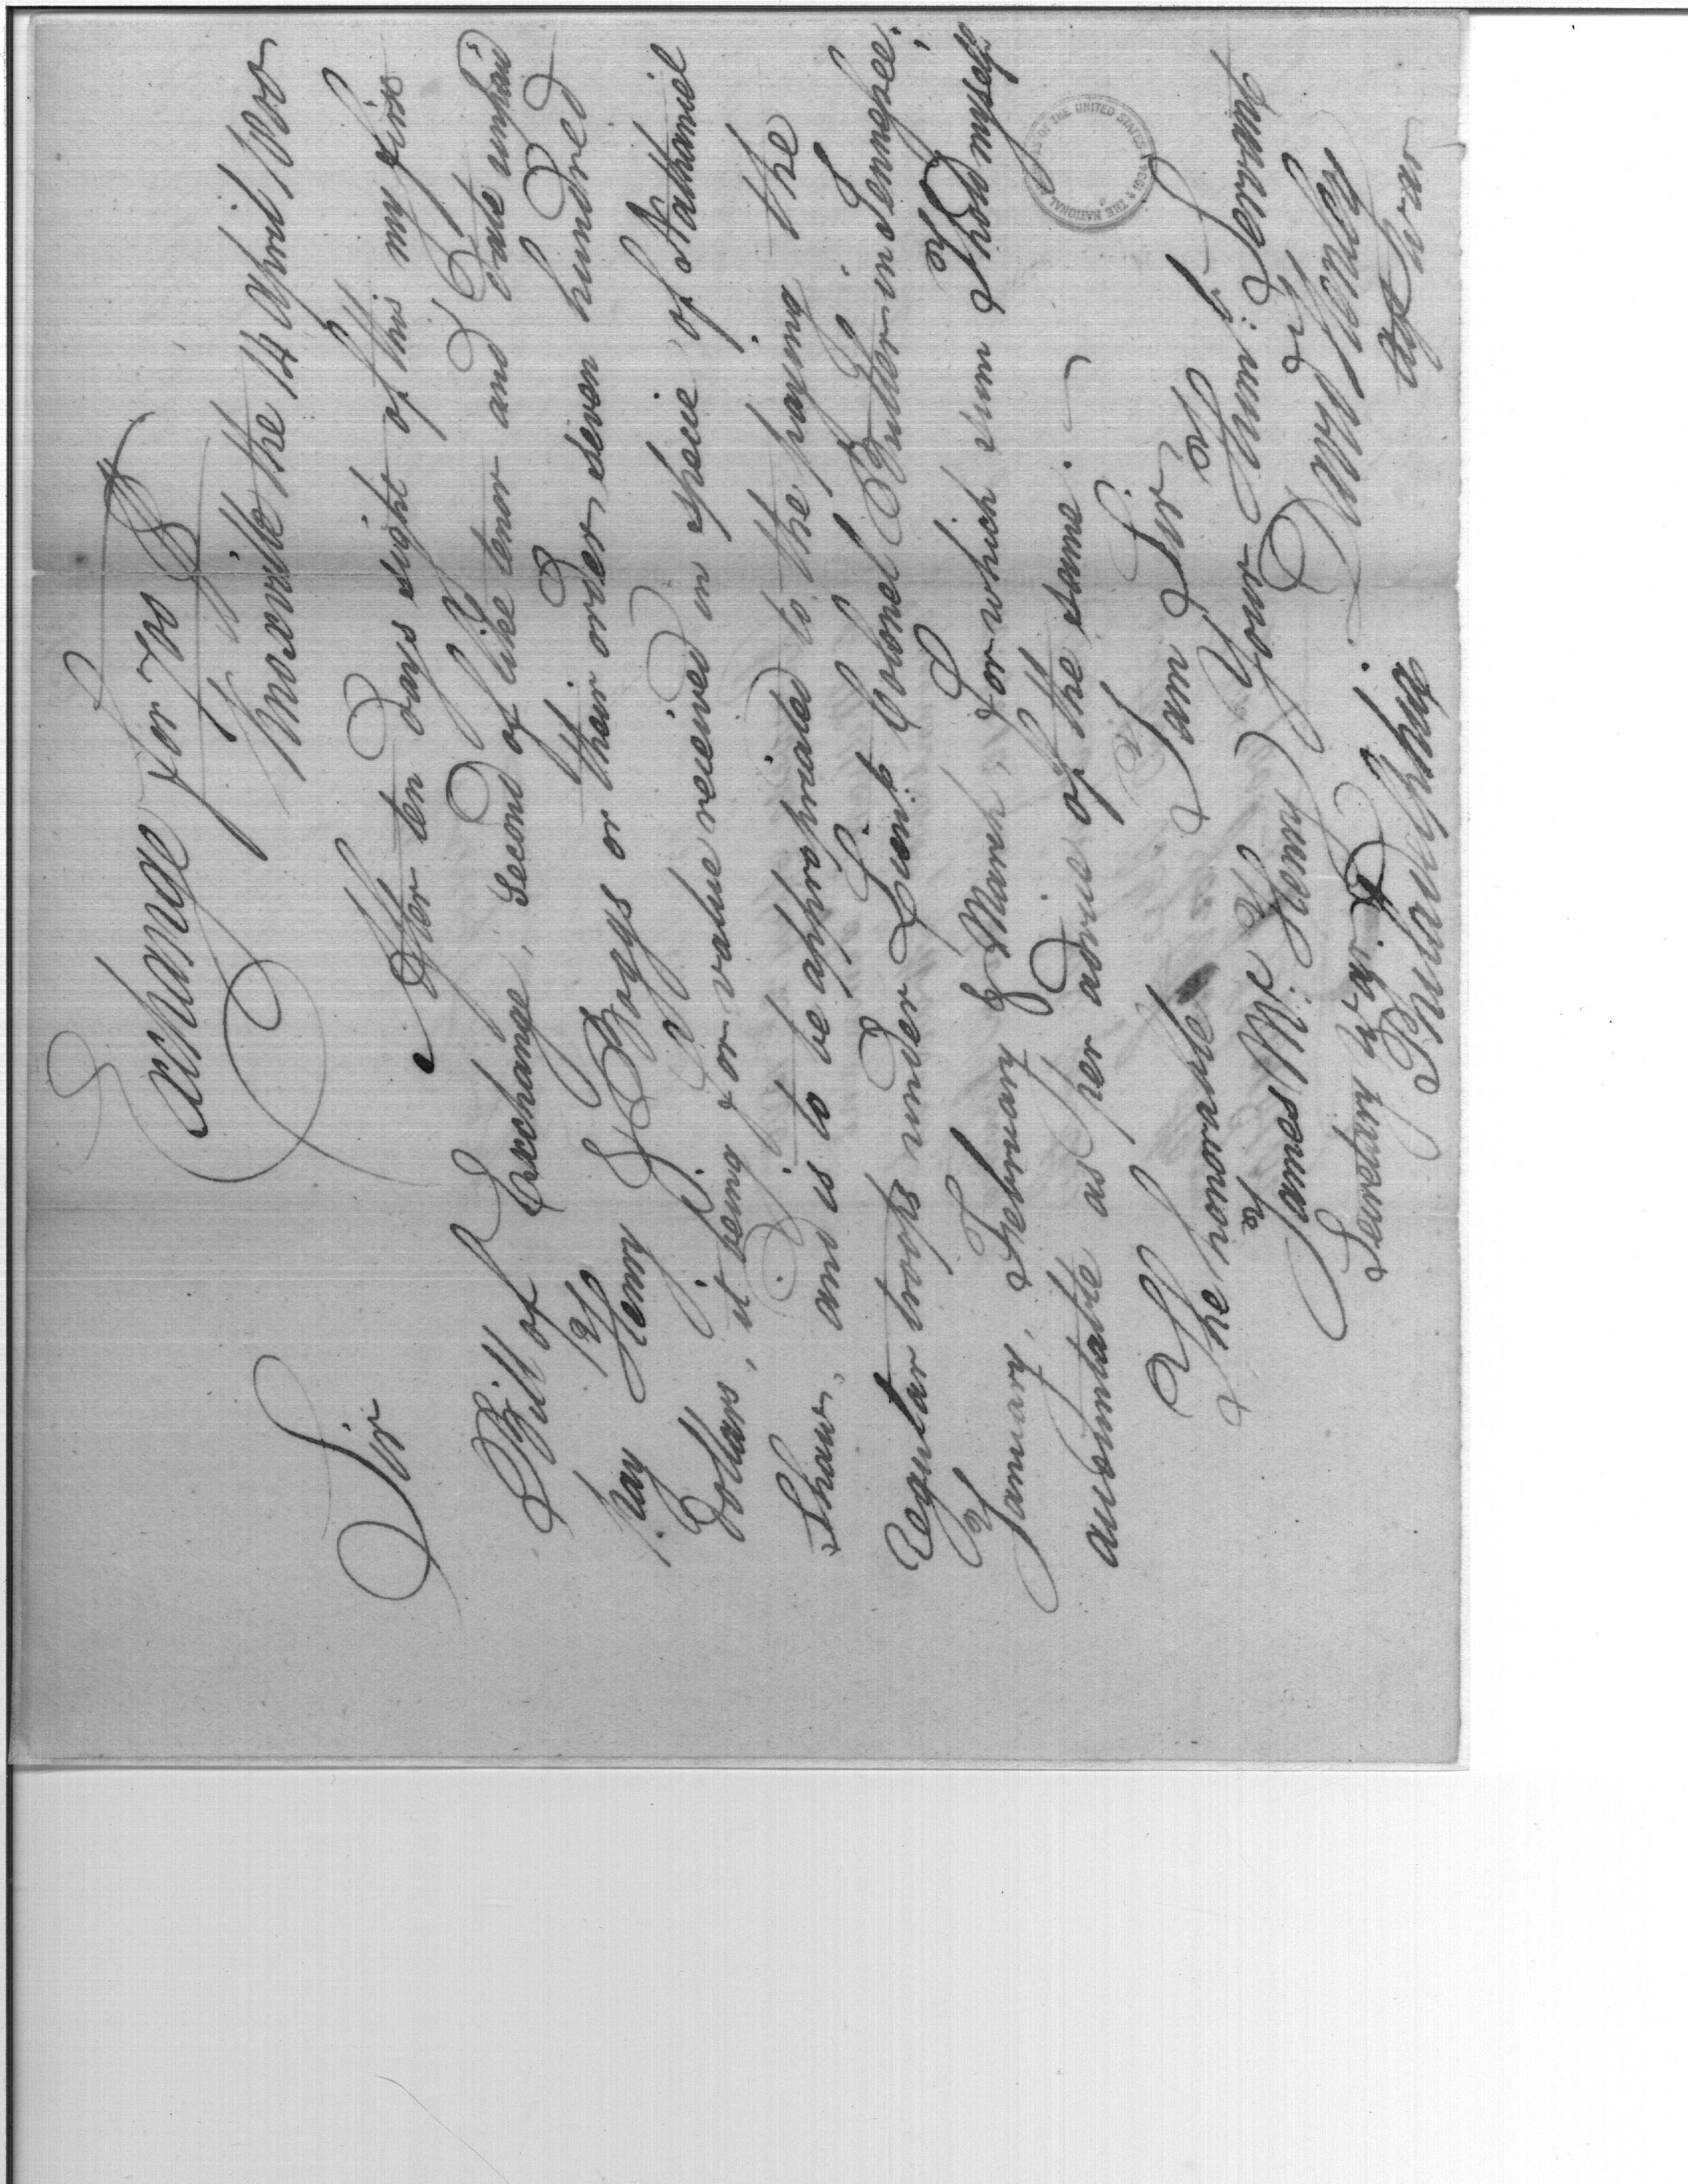 Exchange for 700 $
Knoxville the 14 April 1800
Sir
After ten days sight of this my first
Bill of Exchange, second of like tenor and date unpaid
pay Henry & Boggs or their order seven hundred
dollars, it being for value received in specie of Nathaniel
Shaw, and is to be appropriated to the paying the
regular troops under Lieut Colonel Butler in Tennessee;
January, February & March, for which sum I hold myself
accountable as per advice of the same.
I am Sir
Your Hum: Servant
David Henley
Agt War
The honorable
James McHenry
Secretary War
Philadelphia
THE NATIONAL OF THE UNITED STATES 1934